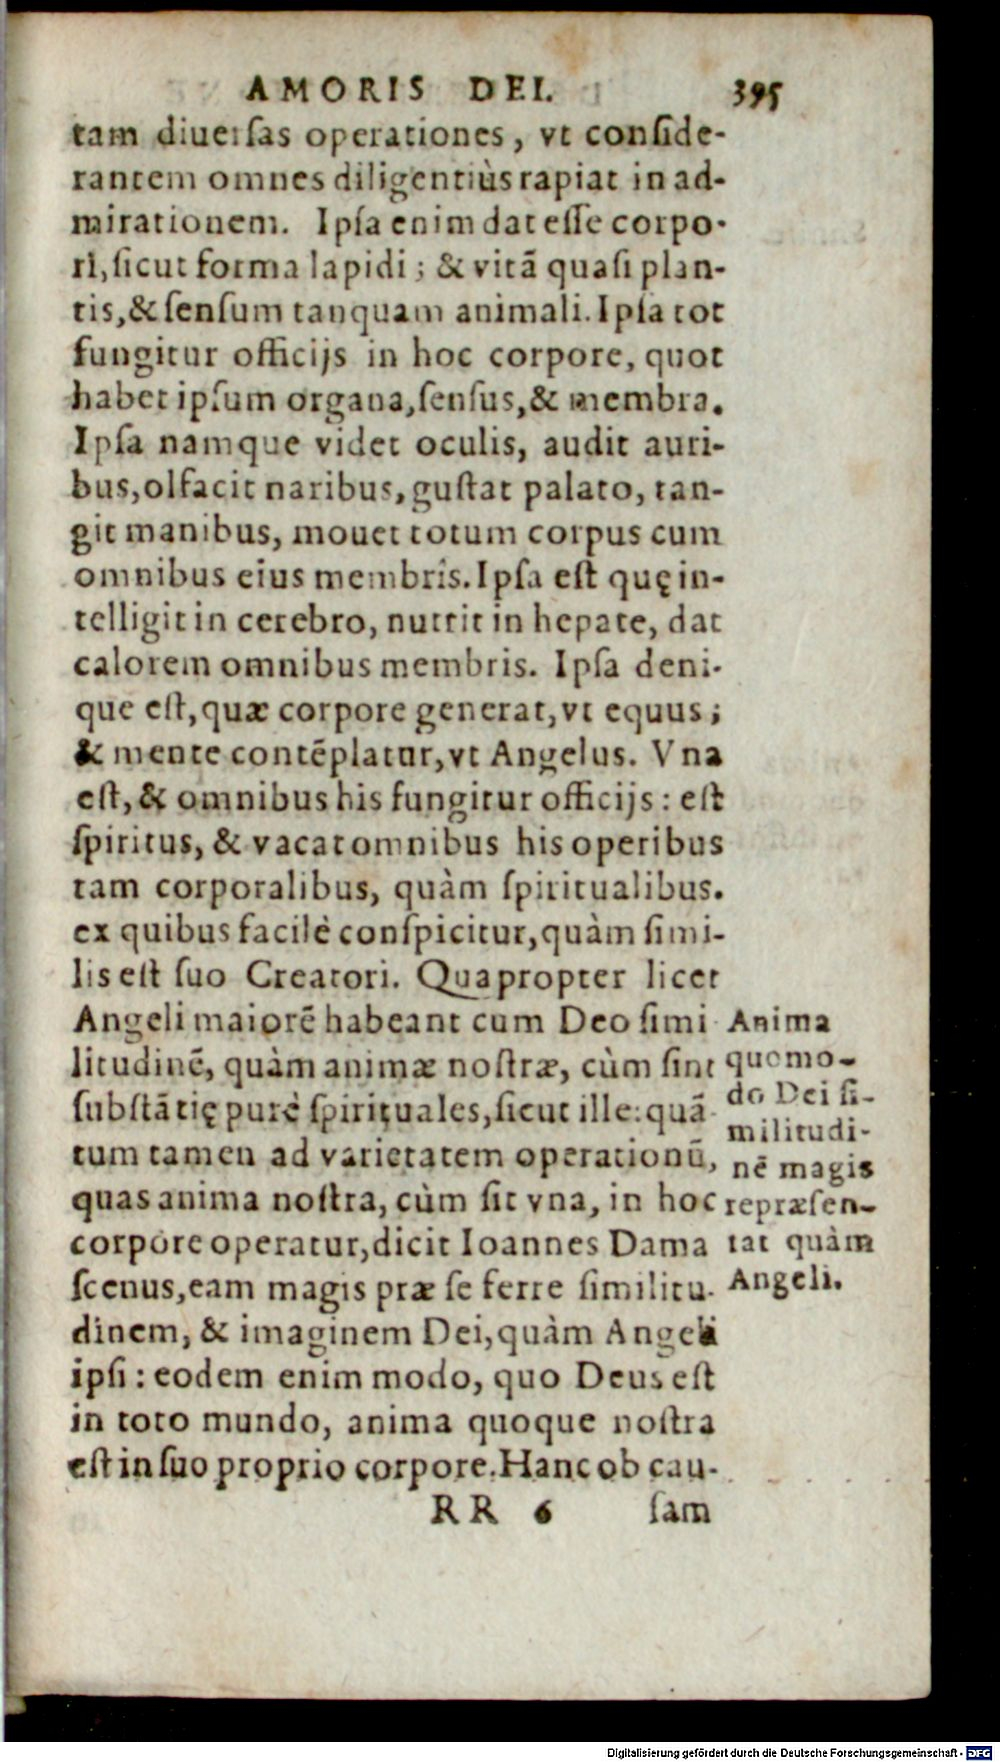 AMORIS DEI. 395
tam diuersas operationes, vt conside-
rantem omnes diligentiùs rapiat in ad-
mirationem. Ipsa enim dat esse corpo-
ri, sicut forma lapidi; & vitã quasi plan-
tis, & sensum tanquam animali. Ipsa tot
fungitur officijs in hoc corpore, quot
habet ipsum organa, sensus, & membra.
Ipsa namque videt oculis, audit auri-
bus, olfacit naribus, gustat palato, tan-
git manibus, mouet totum corpus cum
omnibus eius membris. Ipsa est quę in-
telligit in cerebro, nutrit in hepate, dat
calorem omnibus membris. Ipsa deni-
que est, quæ corpore generat, vt equus;
& mente contẽplatur, vt Angelus. Vna
est, & omnibus his fungitur officijs: est
spiritus, & vacat omnibus his operibus
tam corporalibus, quàm spiritualibus.
ex quibus facilè conspicitur, quàm simi-
lis est suo Creatori. Quapropter licet
Angeli maiorẽ habeant cum Deo simi
litudinẽ, quàm animæ nostræ, cùm sint
substãtię purè spirituales, sicut ille: quã
tum tamen ad varietatem operationũ,
quas anima nostra, cùm sit vna, in hoc
corpore operatur, dicit Ioannes Dama
scenus, eam magis præ se ferre similitu-
dinem, & imaginem Dei, quàm Angeli
ipsi: eodem enim modo, quo Deus est
in toto mundo, anima quoque nostra
est in suo proprio corpore. Hanc ob cau-
RR 6 sam
Anima
quomo-
do Dei si-
militudi-
nẽ magis
repræsen-
tat quàm
Angeli.
Digitalisierung gefördert durch die Deutsche Forschungsgemeinschaft - DFG